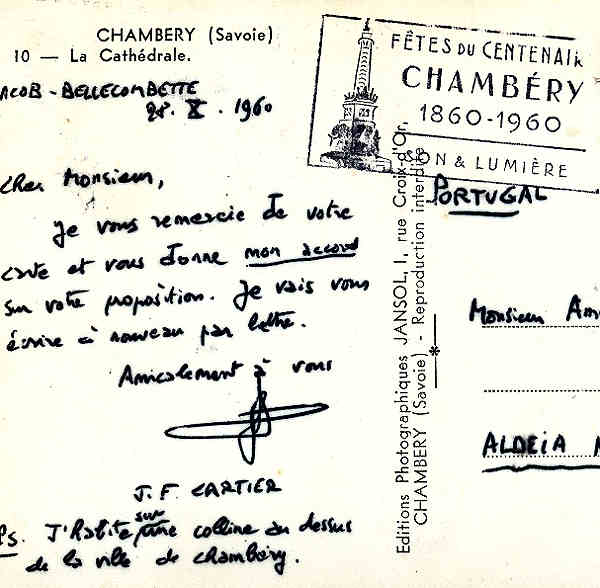 CHAMBERY (Savoie)
10 — La Cathédrale.
ACOB - BELLECOMBETTE
28. X. 1960
Cher Monsieur,
Je vous remercie de votre
carte et vous donne mon accord
sur votre proposition. Je vais vous
écrire à nouveau par lettre.
Amicalement à vous
J. F. CARTIER
Ps. J'habite sur une colline au dessus
de la ville de Chambéry.
FÊTES DU CENTENAIR
CHAMBÉRY
1860-1960
SON & LUMIÈRE
Editions Photographiques JANSOL, 1, rue Croix-d'Or,
CHAMBERY (Savoie) - Reproduction interdite
PORTUGAL
Monsieur Am
ALDEIA